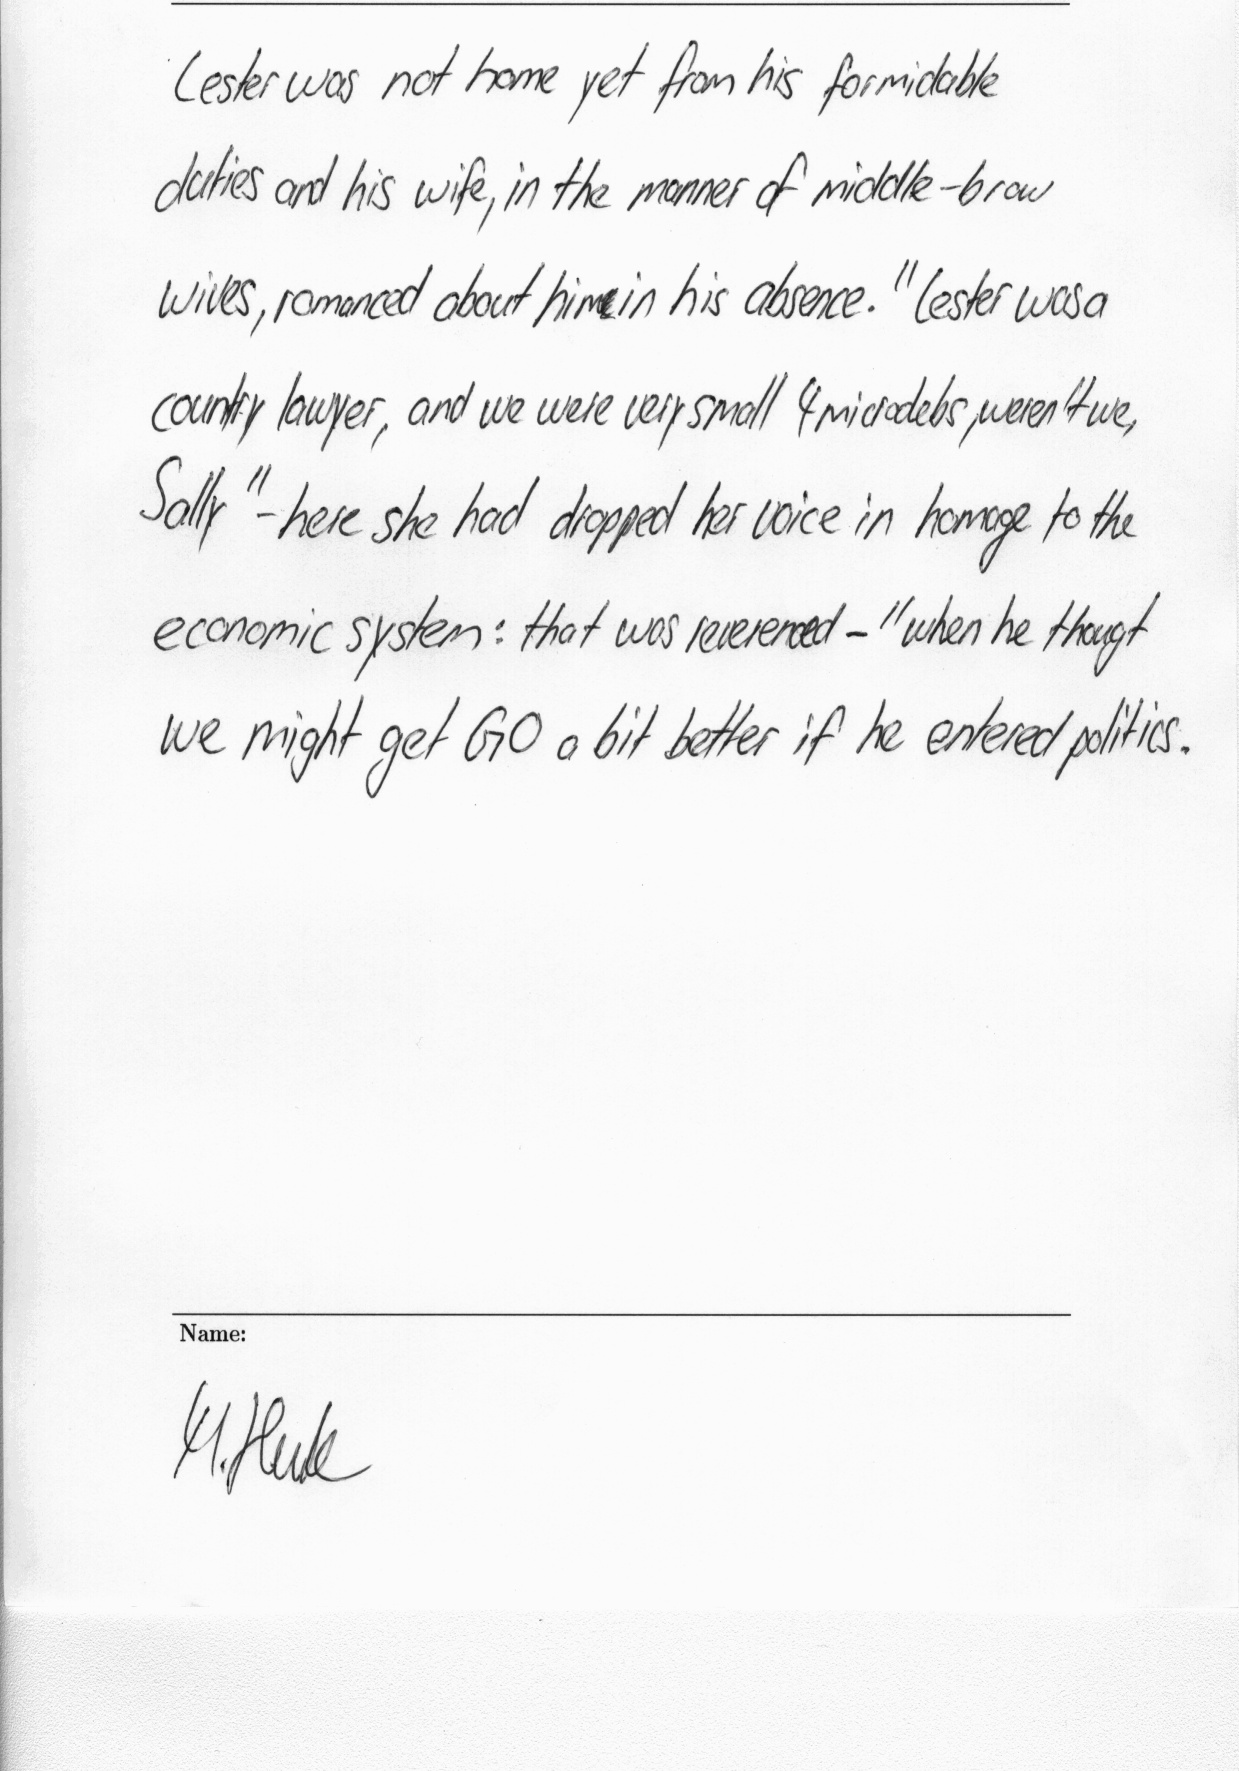 Lester was not home yet from his formidable
duties and his wife, in the manner of middle-brow
wives, romanced about him in his absence. "Lester was a
country lawyer, and we were very small 4 microdebs, weren't we,
Sally" - here she had dropped her voice in homage to the
economic system: that was reverenced - "when he thougt
we might get GO a bit better if he entered politics.
Name: